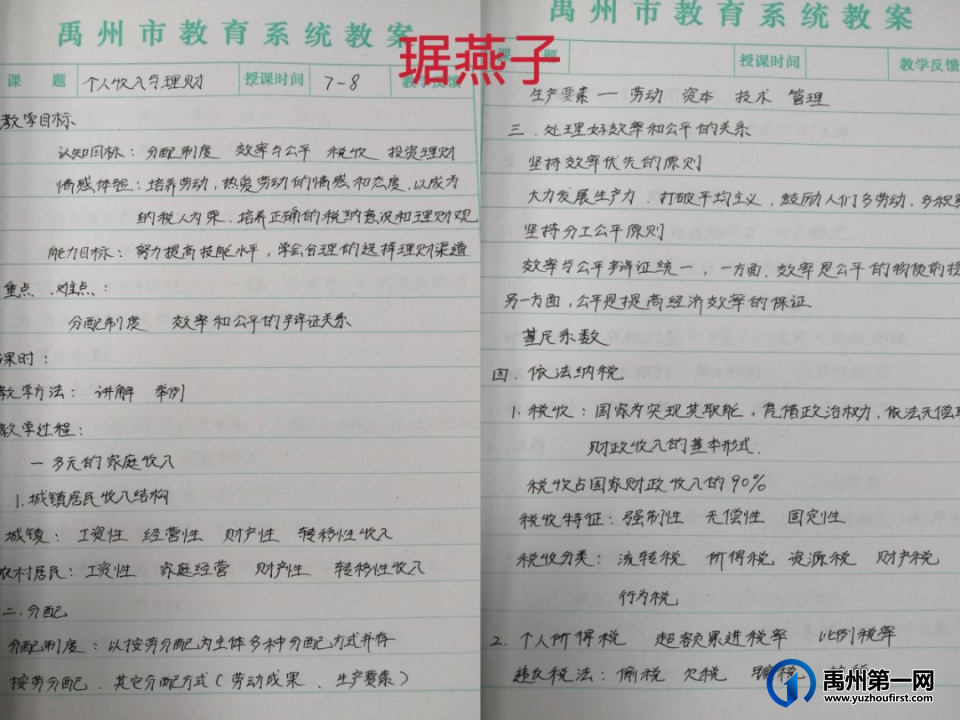 禹州市教育系统教案
课 题 个人收入与理财 授课时间 7-8 教学反馈
琚燕子
教学目标
认知目标：分配制度 效率与公平 税收 投资理财
情感体验：培养劳动，热爱劳动的情感和态度，以成为
纳税人为荣，培养正确的税纳意识和理财观
能力目标：努力提高技能水平，学会合理的选择理财渠道
重点、难点：
分配制度 效率和公平的辩证关系
课时：
教学方法：讲解 举例
教学过程：
一 多元的家庭收入
1.城镇居民收入结构
城镇：工资性 经营性 财产性 转移性收入
农村居民：工资性 家庭经营 财产性 转移性收入
二.分配
分配制度：以按劳分配为主体多种分配方式并存
按劳分配．其它分配方式（劳动成果、生产要素）
禹州市教育系统教案
课 题 授课时间 教学反馈
生产要素一 劳动 资本 技术 管理
三．处理好效率和公平的关系
坚持效率优先的原则
大力发展生产力．打破平均主义，鼓励人们多劳动，多积
坚持分工公平原则
效率与公平辩证统一，一方面，效率是公平的物质前提
另一方面，公平是提高经济效率的保证
基尼系数
四．依法纳税
1.税收：国家为实现其职能，凭借政治权力，依法无偿
财政收入的基本形式．
税收占国家财政收入的90%
税收特征：强制性 无偿性 固定性
税收分类：流转税 所得税 资源税 财产税
行为税
2.个人所得税 超额累进税率 比例税率
违反税法：偷税 欠税 骗税
禹州第一网
www.yuzhoufirst.com